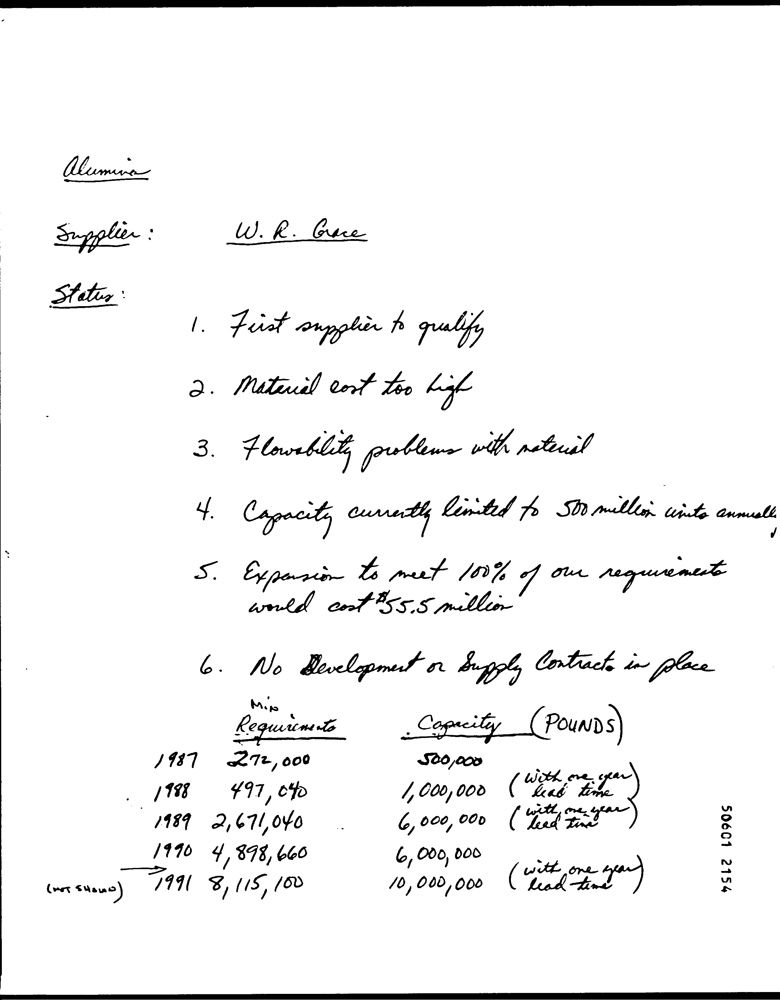 Alumina
Supplier: W. R. Grace
Status:
1. First supplier to qualify
2. Material cost too high
3. Flowability problems with material
4. Capacity currently limited to 500 million units annually
5. Expansion to meet 100% of our requirements
would cost $55.5 million
6. No Development or Supply Contracts in place
Min
Requirements Capacity (POUNDS)
1987 272,000 500,000
1988 497,040 1,000,000 (with one year lead time)
1989 2,671,040 6,000,000 (with one year lead time)
1990 4,898,660 6,000,000
(NOT SHOWN) 1991 8,115,100 10,000,000 (with one year lead time)
50601 2154